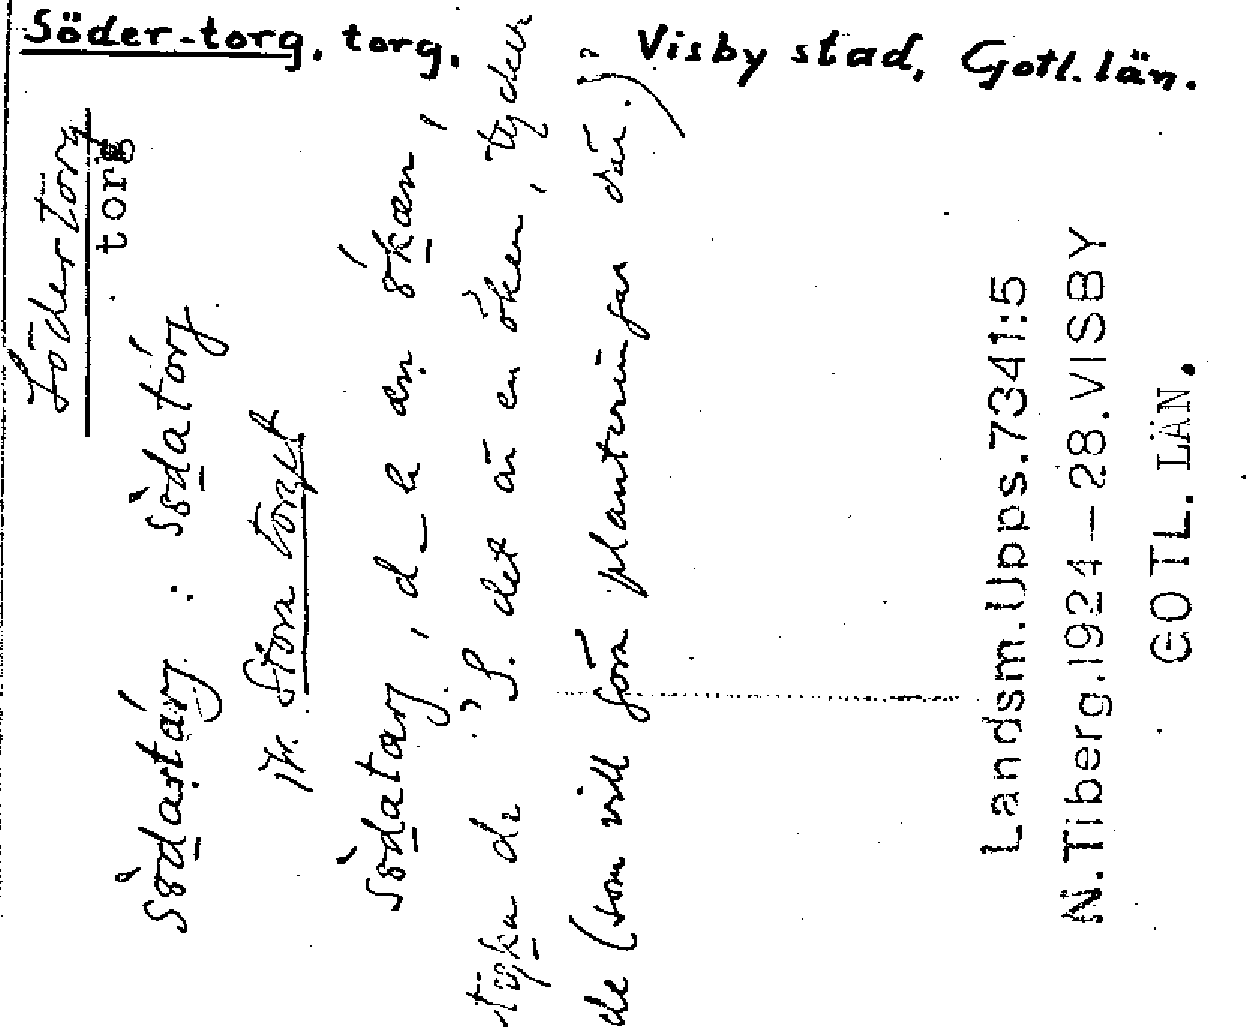 Söder-torg, torg. Visby stad, Gotl. län.
Södertorg
torg
Södartorg : södatórg
Jfr. Stora torget
södatorg, d_ h æn ökæn,
tyka di "S. det är en öken, tycker
de (som vill göra planteringar där.)"
Landsm.Upps.7341:5
N.Tiberg.1924–28.VISBY
GOTL. LÄN.